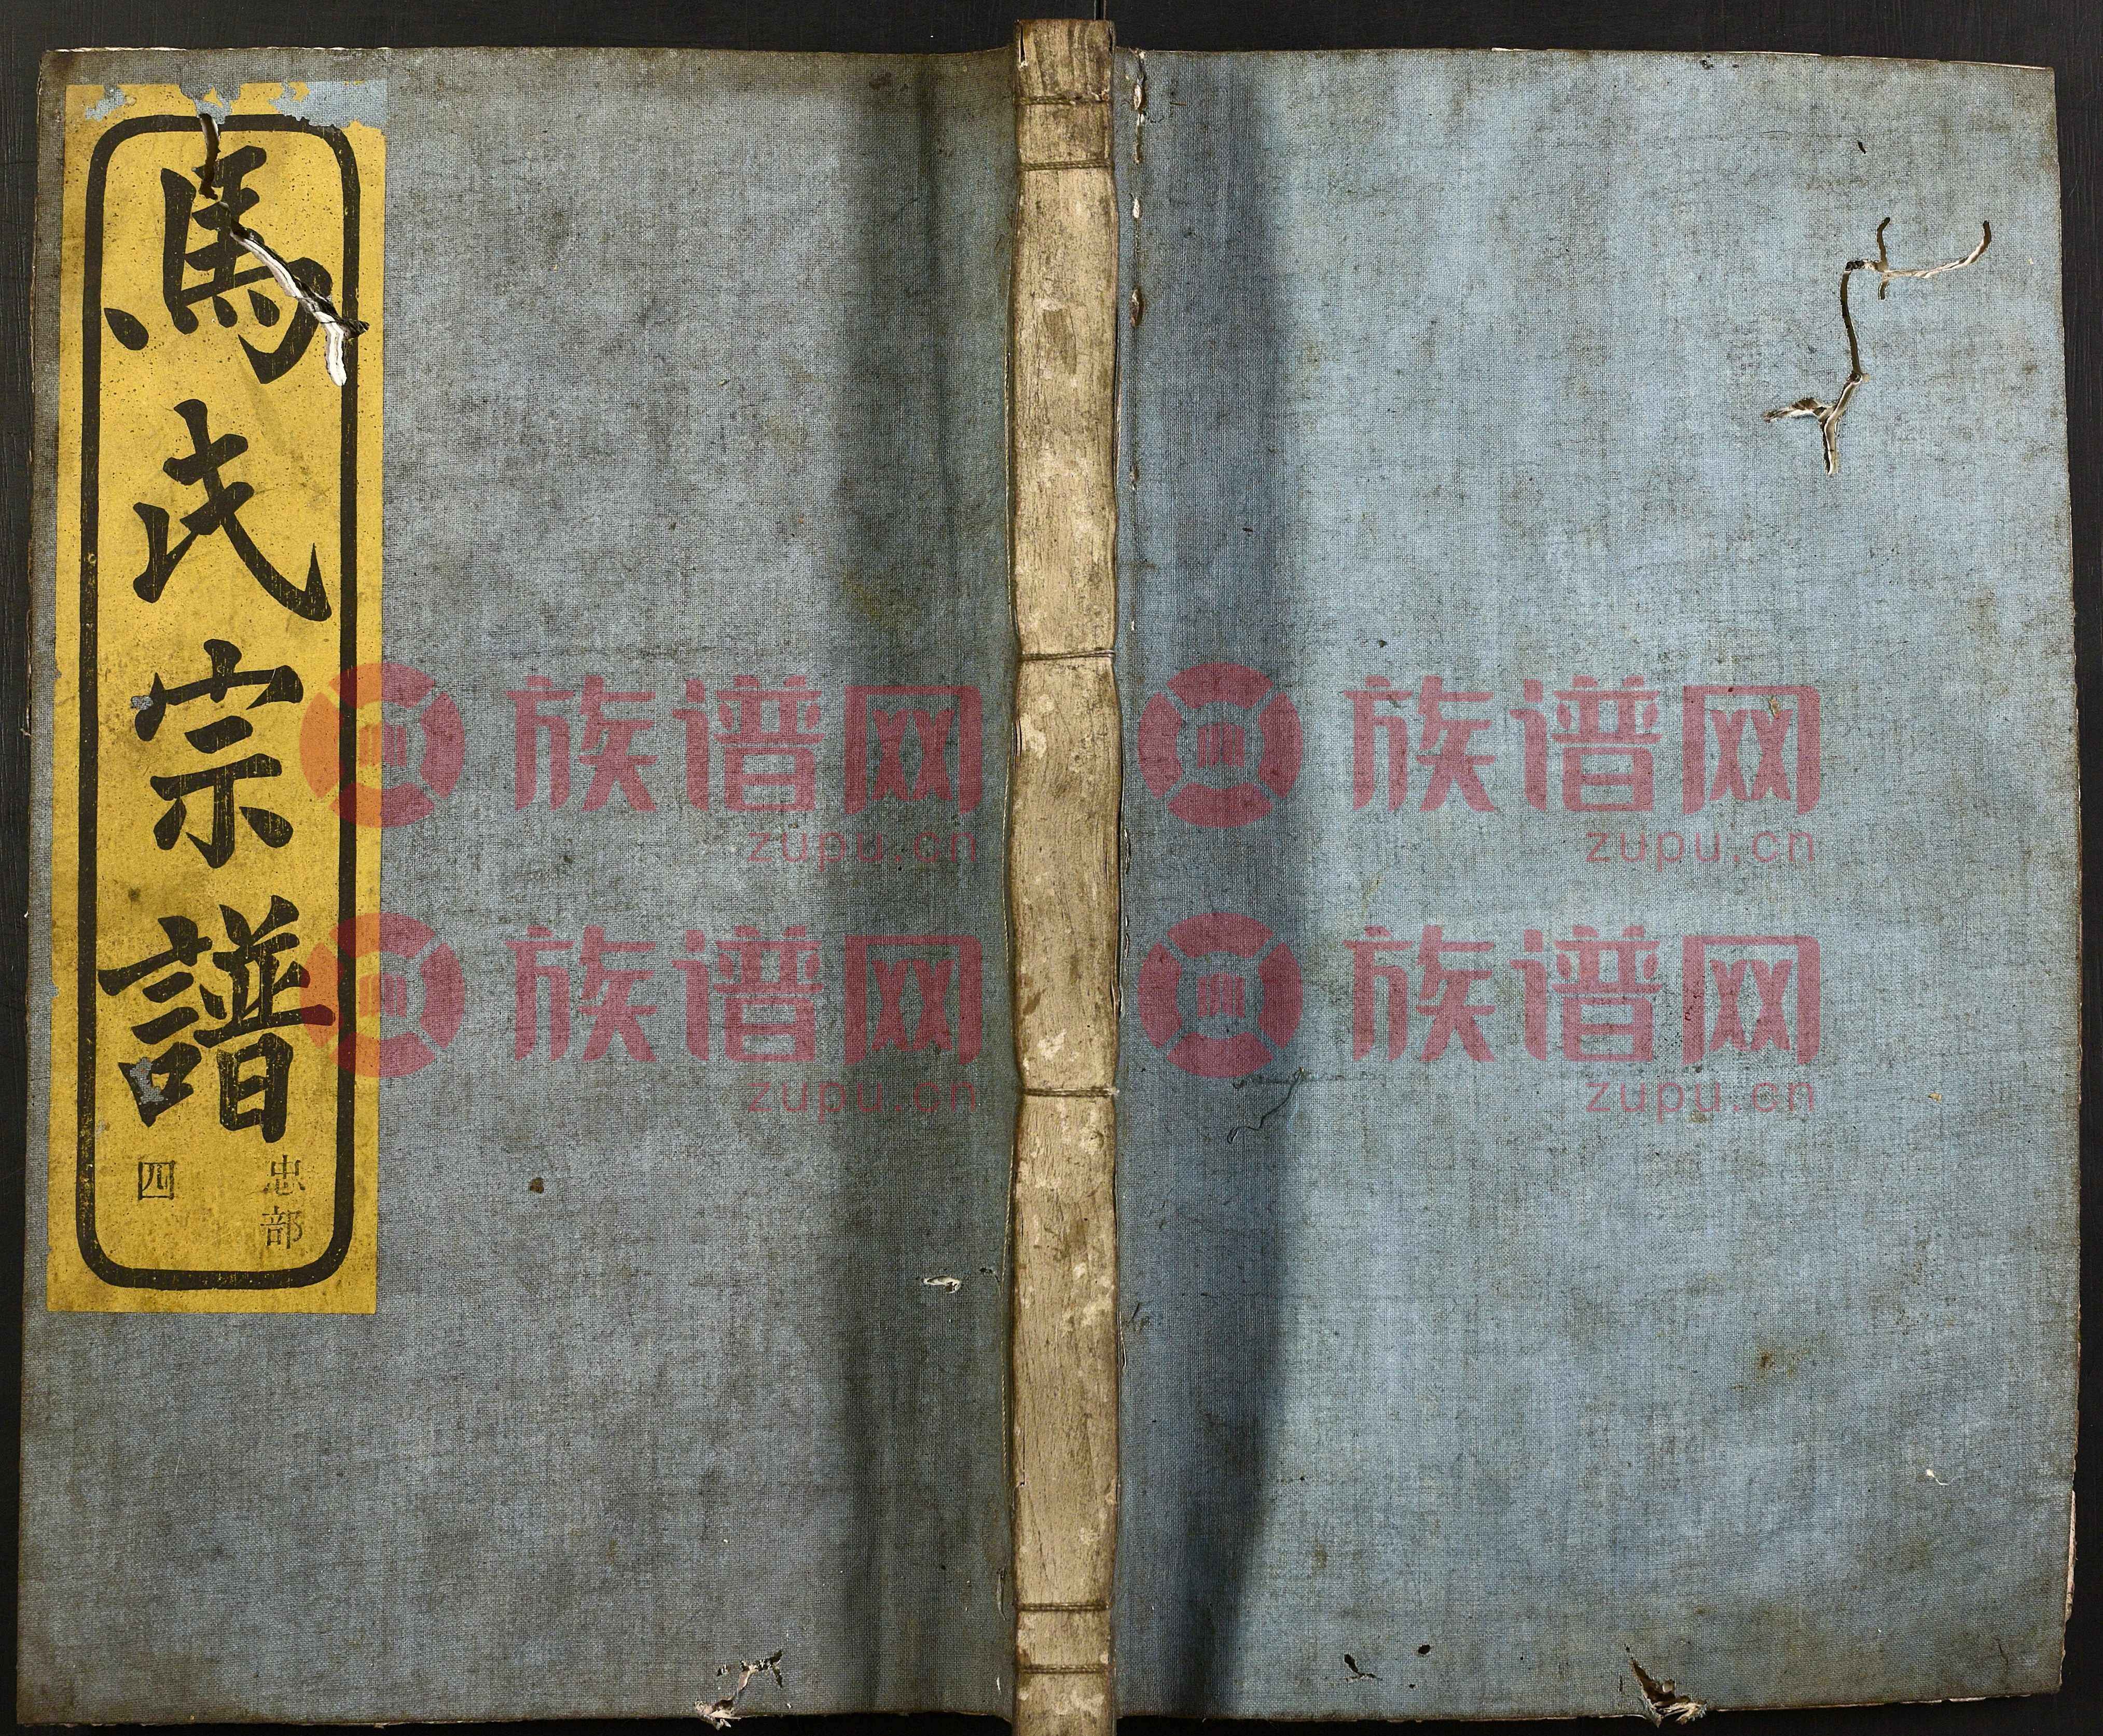 馬氏宗譜
忠部
四
族谱网
zupu.cn
族谱网
zupu.cn
族谱网
zupu.cn
族谱网
zupu.cn